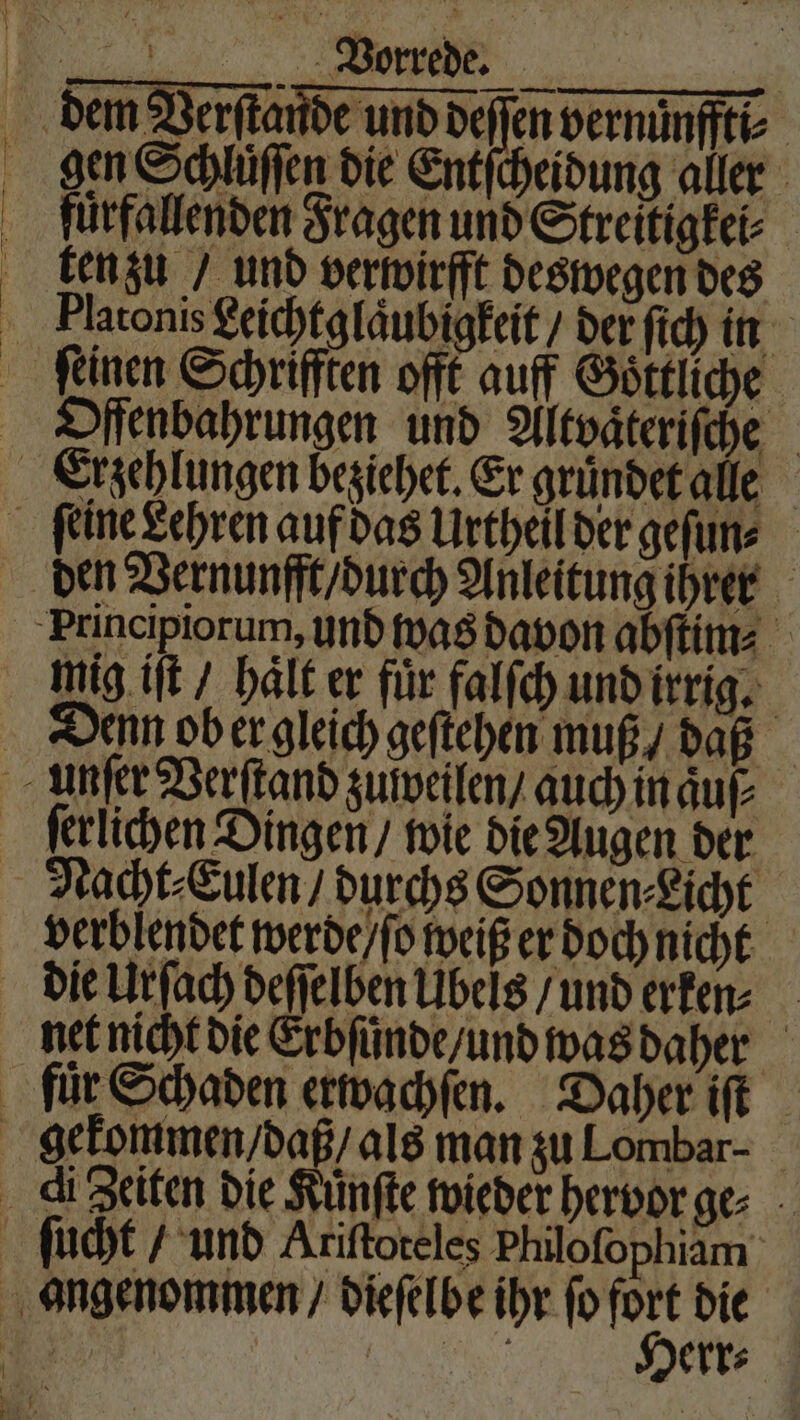 Vorrede.
dem Verſtande und deſſen vernuͤnffti⸗
gen Schluͤſſen die Entſcheidung aller
fuͤrfallenden Fragen und Streitigkei⸗
ten zu / und verwirfft deswegen des
Platonis Leichtglaͤubigkeit / der ſich in
ſeinen Schrifften offt auff Goͤttliche
Offenbahrungen und Altvaͤteriſche
Erzehlungen beziehet. Er gruͤndet alle
ſeine Lehren auf das Urtheil der geſun⸗
den Vernunfft/durch Anleitung ihrer
Principiorum, und was davon abſtim⸗
mig iſt / haͤlt er fuͤr falſch und irrig.
Denn ob er gleich geſtehen muß / daß
unſer Verſtand zuweilen/ auch in aͤuſ⸗
ſerlichen Dingen / wie die Augen der
Nacht⸗Eulen / durchs Sonnen⸗Licht
verblendet werde/ſo weiß er doch nicht
die Urſach deſſelben Ubels / und erken⸗
net nicht die Erbſuͤnde/und was daher
fuͤr Schaden erwachſen. Daher iſt
gekommen/daß/ als man zu Lombar-
di Zeiten die Kuͤnſte wieder hervor ge⸗
ſucht / und Ariſtoteles Philoſophiam
angenommen / dieſelbe ihr ſo fort die
Herr⸗